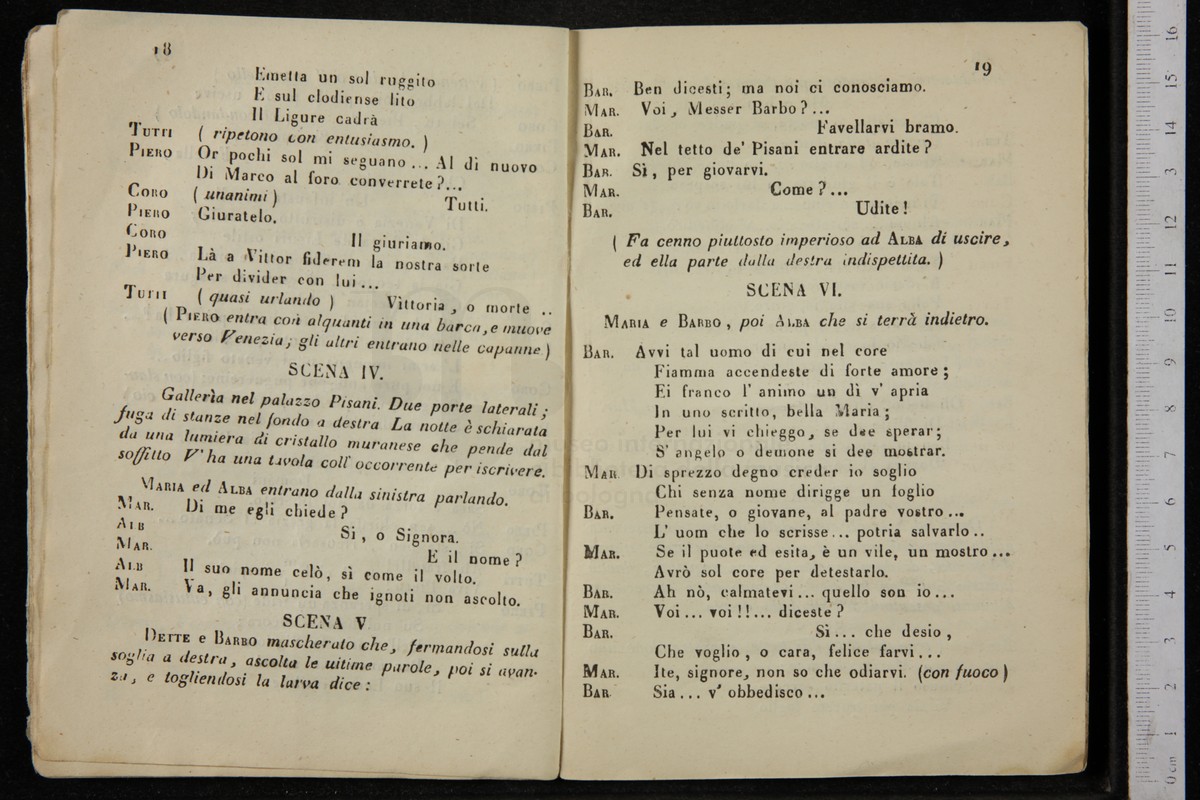 18
Emetta un sol ruggito
E sul clodiense lito
Il Ligure cadrà
TUTTI ( ripetono con entusiasmo. )
PIERO Or pochi sol mi seguano ... Al dì nuovo
Di Marco al foro converrete ?...
CORO ( unanimi ) Tutti.
PIERO Giuratelo.
CORO Il giuriamo.
PIERO Là a Vittor fiderem la nostra sorte
Per divider con lui ...
TUTTI ( quasi urlando ) Vittoria, o morte ..
( PIERO entra con alquanti in una barca, e muove
verso Venezia; gli altri entrano nelle capanne )
SCENA IV.
Gallerìa nel palazzo Pisani. Due porte laterali;
fuga di stanze nel fondo a destra La notte è schiarata
da una lumiera di cristallo muranese che pende dal
soffitto V' ha una tavola coll' occorrente per iscrivere.
MARIA ed ALBA entrano dalla sinistra parlando.
MAR. Di me egli chiede ?
ALB Si, o Signora.
MAR. E il nome ?
ALB Il suo nome celò, sì come il volto.
MAR. Va, gli annuncia che ignoti non ascolto.
SCENA V
DETTE e BARBO mascherato che, fermandosi sulla
soglia a destra, ascolta le ultime parole, poi si avan-
za, e togliendosi la larva dice :
19
BAR. Ben dicesti; ma noi ci conosciamo.
MAR. Voi, Messer Barbo ?...
BAR. Favellarvi bramo.
MAR. Nel tetto de' Pisani entrare ardite ?
BAR. Sì, per giovarvi.
MAR. Come ?...
BAR. Udite !
( Fa cenno piuttosto imperioso ad ALBA di uscire,
ed ella parte dalla destra indispettita. )
SCENA VI.
MARIA e BARBO, poi ALBA che si terrà indietro.
BAR. Avvi tal uomo di cui nel core
Fiamma accendeste di forte amore ;
Ei franco l' animo un dì v' apria
In uno scritto, bella Maria ;
Per lui vi chieggo, se dee sperar;
S' angelo o demone si dee mostrar.
MAR Di sprezzo degno creder io soglio
Chi senza nome dirigge un foglio
BAR. Pensate, o giovane, al padre vostro ...
L' uom che lo scrisse ... potria salvarlo ..
MAR. Se il puote ed esita, è un vile, un mostro ...
Avrò sol core per detestarlo.
BAR. Ah nò, calmatevi ... quello son io ...
MAR. Voi ... voi !!... diceste ?
BAR. Sì ... che desio ,
Che voglio , o cara, felice farvi ...
MAR. Ite, signore, non so che odiarvi. (con fuoco)
BAR Sia ... v' obbedisco ...